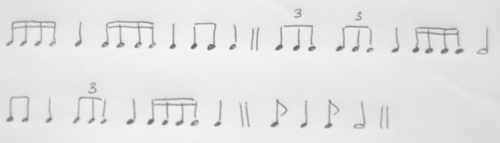 3 3
3